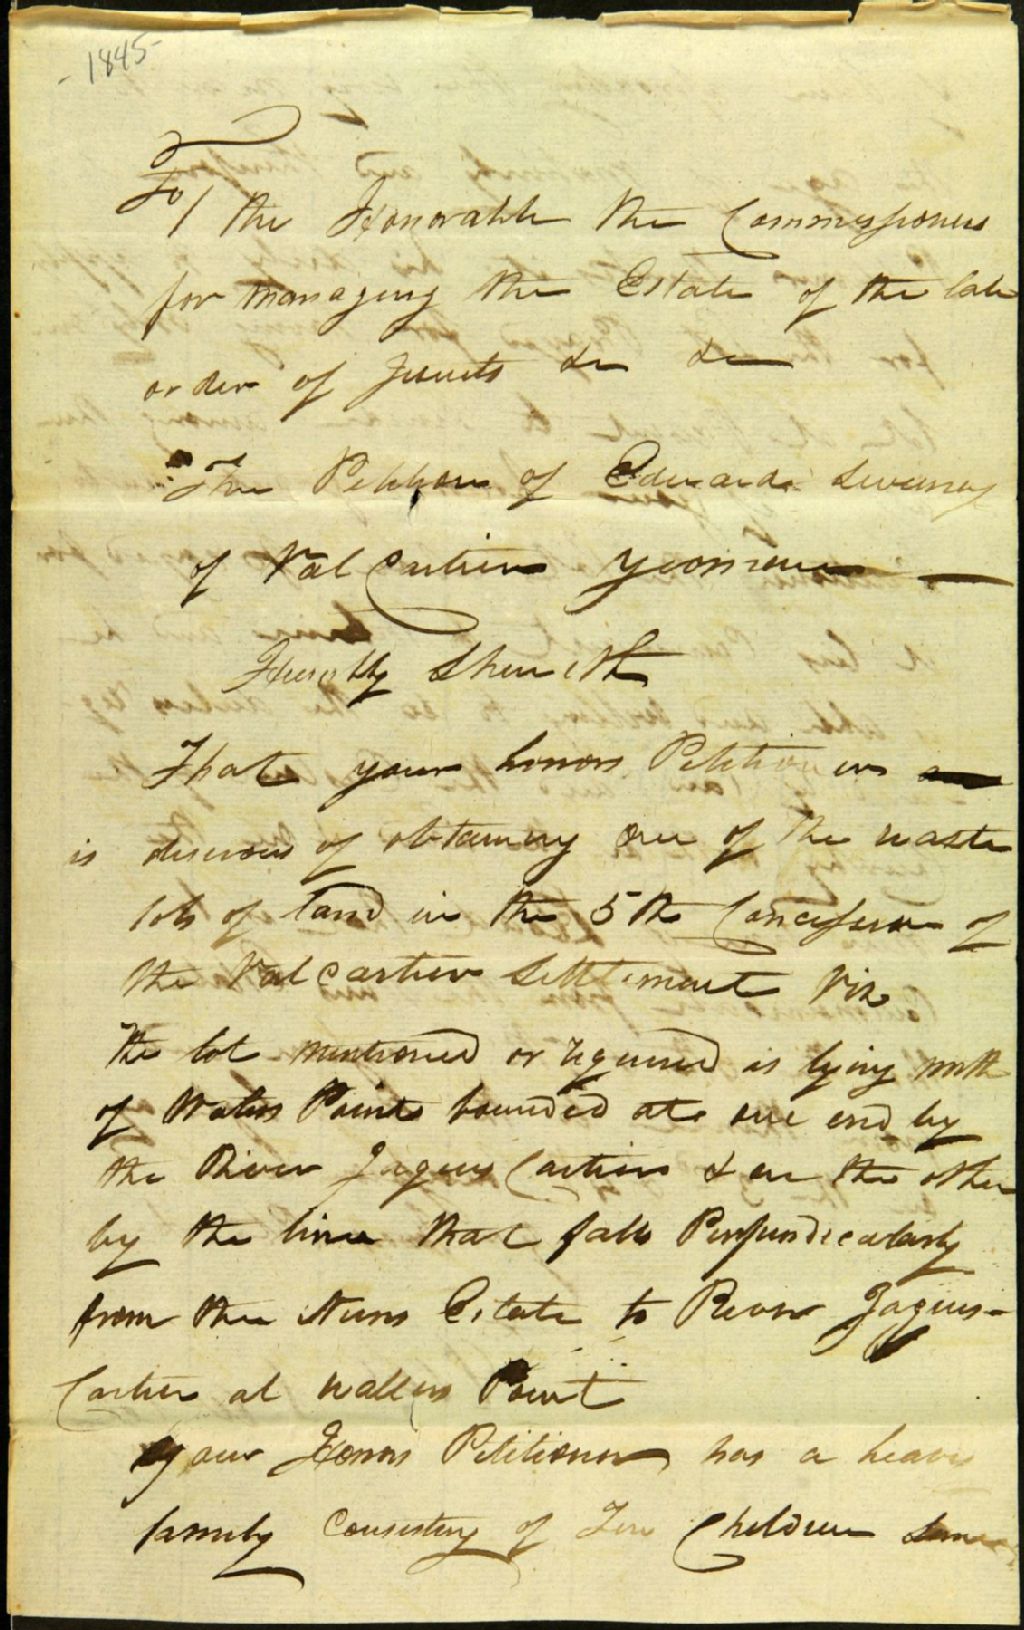 -1845-
To / the Honorable the Commissioners
for managing the Estate of the late
order of Jesuits &c &c
The Petition of Edward Sweeney
of Val Cartier yeoman
Humbly Sheweth
That your honors Petitioner
is desirous of obtaining one of the waste
lots of land in the 5th Concession of
the Valcartier Settlement Viz
the lot mentioned or required is lying north
of Wolfes Point bounded at one end by
the River Jaques Cartier & on the other
by the line that falls Perpendicularly
from the Nuns Estate to River Jaques-
Cartier at Point
your Honors Petitioner has a heavy
family Consisting of Ten Children